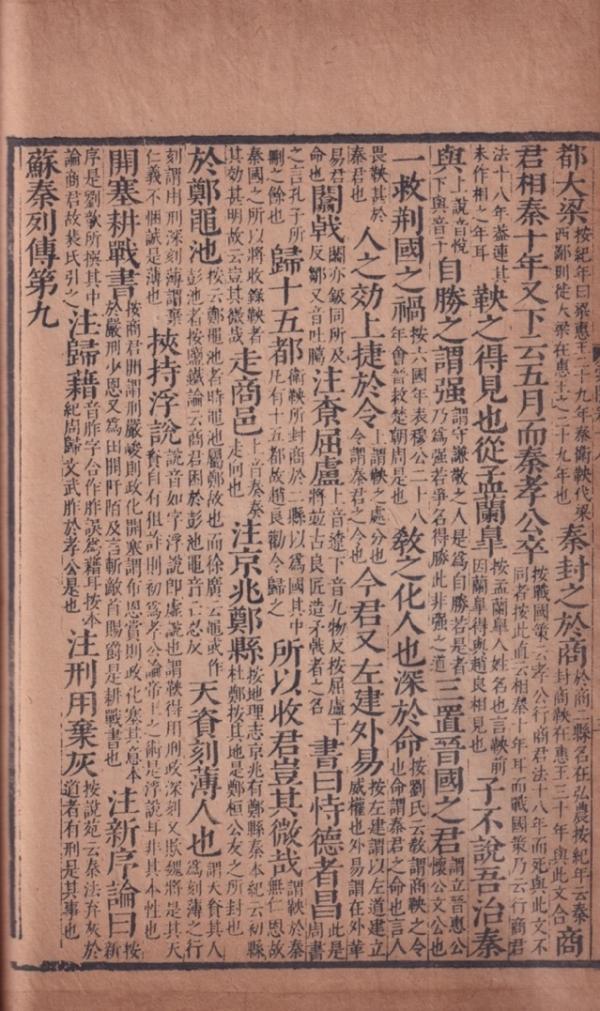 都大梁按紀年曰梁惠王二十九年秦衛鞅伐梁西鄙則徙大梁在惠王之二十九年也秦封之於商於商二縣名在弘農按紀年云秦封商鞅在惠王三十年與此文合商
君相秦十年又下云五月而秦孝公卒按戰國策云孝公行商君法十八年而死與此文不同者按此直云相秦十年耳而戰國策乃云行商君
法十八年蓋連其未作相之年耳鞅之得見也從孟蘭皐按孟蘭皐人姓名也言鞅前因蘭皐得與趙良相見也子不說吾治秦
與上說音悅下與音予自勝之謂强謂守謙敬之人是爲自勝若是者乃爲强若爭名得勝此非强之道三置晉國之君謂立晉惠公懷公文公也
一救荆國之禍按六國年表穆公二十八年會晉救楚朝周是也敎之化人也深於命按劉氏云敎謂商鞅之令也命謂秦君之命也言人
畏鞅甚於秦君也人之効上捷於令上謂鞅之處分也令謂秦君之令也今君又左建外易按左建謂以左道建立威權也外易謂在外革
易君命也闟戟闟亦鈒同所及反鄒又音吐臘注屈盧上音遼下音九物反按屈盧干將並古良匠造矛戟者之名書曰恃德者昌此是周書
之言孔子所刪之餘也歸十五都衛鞅所封商於二縣以爲國其中凡有十五都故趙良勸令歸之所以收君豈其微哉謂鞅於秦無仁恩故
秦國之所以將收錄鞅者其効甚明故云豈其微哉走商邑上音奏奏走向也注京兆鄭縣按地理志京兆有鄭縣秦本紀云初縣杜鄭按其地是鄭桓公友之所封也
於鄭黽池按云鄭黽池者時黽池屬鄭故也而徐廣云黽或作彭池者按鹽鐵論云商君困於彭池黽音亡忍反天資刻薄人也謂天資其人爲刻薄之行
刻謂用刑深刻薄謂棄仁義不悃誠是薄也挾持浮說說音如字浮說卽虛說也謂鞅得用刑政深刻又欺魏將是其天資自有狙詐則初爲孝公論帝王之術是浮說耳非其本性也
開塞耕戰書按商君開謂刑嚴峻則政化開塞謂布恩賞則政化塞其意本於嚴刑少恩又爲田開阡陌及言斬敵首賜爵是耕戰書也注新序論曰按新
序是劉歆所撰其中論商君故裴氏引之注歸籍音胙字合作胙誤爲籍耳按本紀周歸文武胙於孝公是也注刑用棄灰按說苑云秦法弃灰於道者有刑是其事也
蘇秦列傳第九